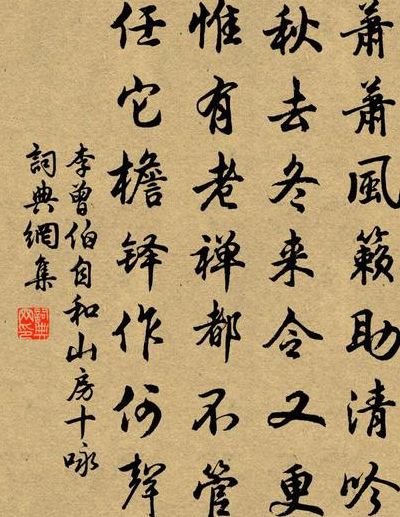 萧萧風籁助清吟
秋去冬来令又更
惟有老禅都不管
任它檐铎作何聲
李曾伯自和山房十咏
詞典網集